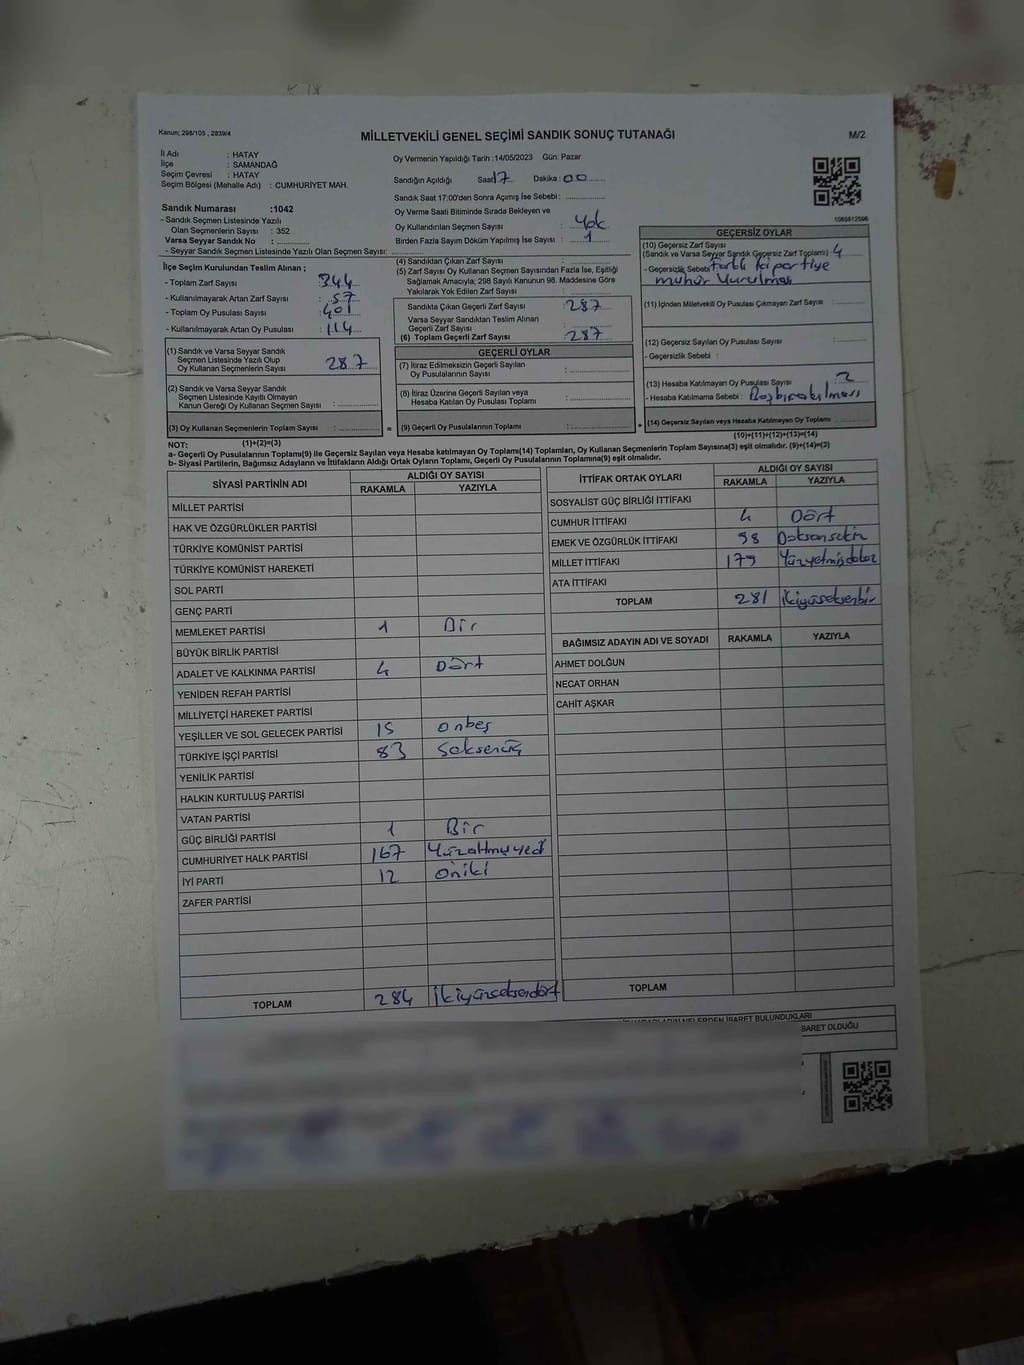 Kanun; 298/105 , 2839/4
MİLLETVEKİLİ GENEL SEÇİMİ SANDIK SONUÇ TUTANAĞI
M/2
İl Adı : HATAY
İlçe : SAMANDAĞ
Seçim Çevresi : HATAY
Seçim Bölgesi (Mahalle Adı) : CUMHURİYET MAH.
Sandık Numarası :1042
- Sandık Seçmen Listesinde Yazılı
Olan Seçmenlerin Sayısı : 352
Varsa Seyyar Sandık No :
- Seyyar Sandık Seçmen Listesinde Yazılı Olan Seçmen Sayısı:
Oy Vermenin Yapıldığı Tarih :14/05/2023 Gün: Pazar
Sandığın Açıldığı Saat 17 Dakika : 00
Sandık Saat 17:00'den Sonra Açımış İse Sebebi :
Oy Verme Saati Bitiminde Sırada Bekleyen ve
Oy Kullandırılan Seçmen Sayısı : Yok
Birden Fazla Sayım Döküm Yapılmış İse Sayısı : 1
İlçe Seçim Kurulundan Teslim Alınan ;
- Toplam Zarf Sayısı : 344
- Kullanılmayarak Artan Zarf Sayısı : 57
- Toplam Oy Pusulası Sayısı : 401
- Kullanılmayarak Artan Oy Pusulası : 114
(1) Sandık ve Varsa Seyyar Sandık
Seçmen Listesinde Yazılı Olup
Oy Kullanan Seçmenlerin Sayısı : 287
(2) Sandık ve Varsa Seyyar Sandık
Seçmen Listesinde Kayıtlı Olmayan
Kanun Gereği Oy Kullanan Seçmen Sayısı :
(3) Oy Kullanan Seçmenlerin Toplam Sayısı :
(4) Sandıktan Çıkan Zarf Sayısı :
(5) Zarf Sayısı Oy Kullanan Seçmen Sayısından Fazla İse, Eşitliği
Sağlamak Amacıyla; 298 Sayılı Kanunun 98. Maddesine Göre
Yakılarak Yok Edilen Zarf Sayısı :
Sandıkta Çıkan Geçerli Zarf Sayısı : 287
Varsa Seyyar Sandıktan Teslim Alınan
Geçerli Zarf Sayısı :
(6) Toplam Geçerli Zarf Sayısı : 287
GEÇERLİ OYLAR
(7) İtiraz Edilmeksizin Geçerli Sayılan
Oy Pusulalarının Sayısı :
(8) İtiraz Üzerine Geçerli Sayılan veya
Hesaba Katılan Oy Pusulası Toplamı :
= (9) Geçerli Oy Pusulalarının Toplamı :
1085812596
GEÇERSİZ OYLAR
(10) Geçersiz Zarf Sayısı
(Sandık ve Varsa Seyyar Sandık Geçersiz Zarf Toplamı) 4
- Geçersizlik Sebebi Farklı iki partiye
mühür Vurulması
(11) İçinden Milletvekili Oy Pusulası Çıkmayan Zarf Sayısı :
(12) Geçersiz Sayılan Oy Pusulası Sayısı :
- Geçersizlik Sebebi :
(13) Hesaba Katılmayan Oy Pusulası Sayısı : 2
- Hesaba Katılmama Sebebi : Boş bırakılması
+ (14) Geçersiz Sayılan veya Hesaba Katılmayan Oy Toplamı :
NOT: (1)+(2)=(3)
(10)+(11)+(12)+(13)=(14)
a- Geçerli Oy Pusulalarının Toplamı(9) ile Geçersiz Sayılan veya Hesaba katılmayan Oy Toplamı(14) Toplamları, Oy Kullanan Seçmenlerin Toplam Sayısına(3) eşit olmalıdır. (9)+(14)=(3)
b- Siyasi Partilerin, Bağımsız Adayların ve İttifakların Aldığı Ortak Oyların Toplamı, Geçerli Oy Pusulalarının Toplamına(9) eşit olmalıdır.
SİYASİ PARTİNİN ADI ALDIĞI OY SAYISI
RAKAMLA YAZIYLA
MİLLET PARTİSİ
HAK VE ÖZGÜRLÜKLER PARTİSİ
TÜRKİYE KOMÜNİST PARTİSİ
TÜRKİYE KOMÜNİST HAREKETİ
SOL PARTİ
GENÇ PARTİ
MEMLEKET PARTİSİ 1 Bir
BÜYÜK BİRLİK PARTİSİ
ADALET VE KALKINMA PARTİSİ 4 Dört
YENİDEN REFAH PARTİSİ
MİLLİYETÇİ HAREKET PARTİSİ
YEŞİLLER VE SOL GELECEK PARTİSİ 15 Onbeş
TÜRKİYE İŞÇİ PARTİSİ 83 Seksenüç
YENİLİK PARTİSİ
HALKIN KURTULUŞ PARTİSİ
VATAN PARTİSİ
GÜÇ BİRLİĞİ PARTİSİ 1 Bir
CUMHURİYET HALK PARTİSİ 167 Yüzaltmışyedi
İYİ PARTİ 12 Oniki
ZAFER PARTİSİ
TOPLAM 284 İkiyüzseksendört
İTTİFAK ORTAK OYLARI ALDIĞI OY SAYISI
RAKAMLA YAZIYLA
SOSYALİST GÜÇ BİRLİĞİ İTTİFAKI
CUMHUR İTTİFAKI 4 Dört
EMEK VE ÖZGÜRLÜK İTTİFAKI 98 Doksansekiz
MİLLET İTTİFAKI 179 Yüzyetmişdokuz
ATA İTTİFAKI
TOPLAM 281 İkiyüzseksenbir
BAĞIMSIZ ADAYIN ADI VE SOYADI RAKAMLA YAZIYLA
AHMET DOLĞUN
NECAT ORHAN
CAHİT AŞKAR
TOPLAM
NELERDEN İBARET BULUNDUKLARI
BARET OLDUĞU